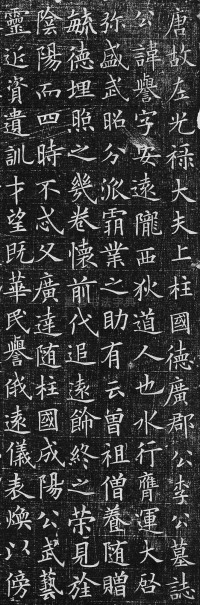 唐故左光祿大夫上柱國德廣郡公李公墓誌
公諱譽字安遠隴西狄道人也水行膺運大启
弥盛武昭分派霸業之助有云曾祖僧養随贈
毓德埋照之幾卷懷前代追遠飾終之榮見於
陰陽而四時不忒父廣達随柱國成陽公武藝
靈近資遺訓才望既華民譽俄遠儀表煥以傍